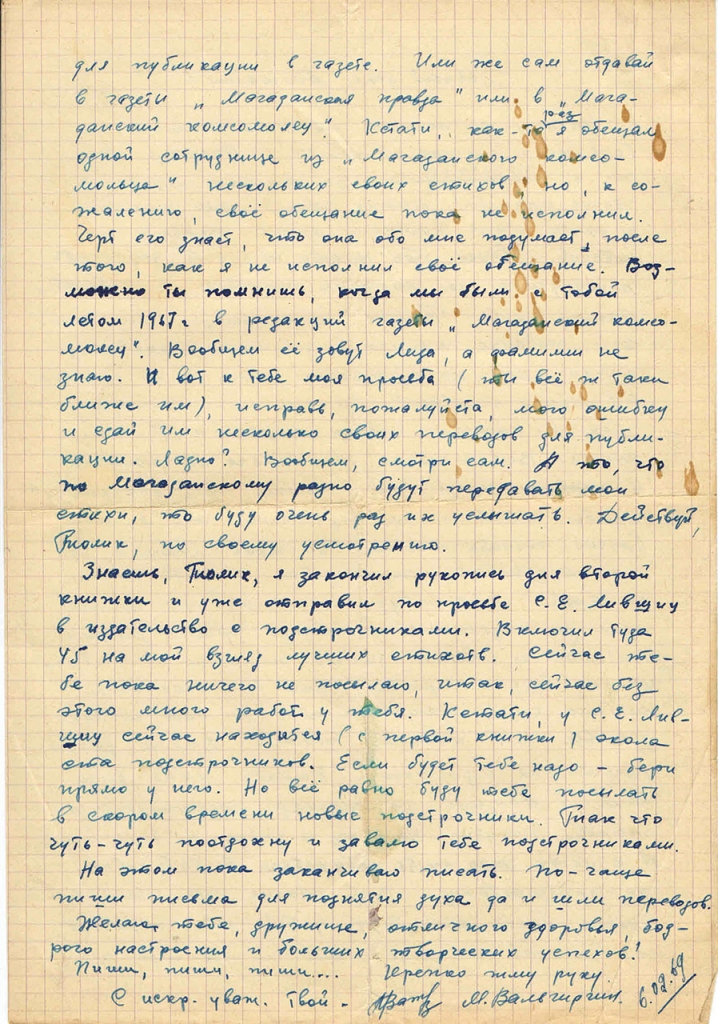 для публикации в газете. Или же сам отдавай
в газеты „Магаданская правда" или в „Мага-
данский комсомолец". Кстати, как-то раз я обещал
одной сотруднице из „Магаданского комсо-
мольца" нескольких своих стихов, но, к со-
жалению, своё обещание пока не исполнил.
Черт его знает, что она обо мне подумает, после
этого, как я не исполнил своё обещание. Воз-
можно ты помнишь, когда мы были с тобой
летом 1967г в редакций газеты „Магаданский комсо-
молец". Вообщем её зовут Лида, а фамилии не
знаю. И вот к тебе моя просьба (ты всё ж таки
ближе им), исправь, пожалуйста, мою ошибку
и сдай им несколько своих переводов для публи-
кации. Ладно? Вообщем, смотри сам. А то, что
по Магаданскому радио будут передавать мои
стихи, то буду очень рад их услышать. Действуй,
Толик, по своему усмотрению.
Знаешь, Толик, я закончил рукопись для второй
книжки и уже отправил по просьбе С. Е. Лившицу
в издательство с подстрочниками. Включил туда
45 на мой взгляд лучших стихотв. Сейчас те-
бе пока ничего не посылаю, итак, сейчас без
этого много работ у тебя. Кстати, у С. Е. Лив-
шиц сейчас находятся (с первой книжки) окола
ста подстрочников. Если будет тебе надо – бери
прямо у него. Но всё равно буду тебе посылать
в скором времени новые подстрочники. Так что
чуть-чуть поотдохну и завалю тебе подстрочниками.
На этом пока заканчиваю писать. По-чаще
пиши письма для поднятия духа да и шли переводов.
Желаю тебе, дружище, отличного здоровья, бод-
рого настроения и больших творческих успехов!
Пиши, пиши, пиши... Черепко жму руку.
С искр. уваж. Твой – М. Вальгиргин. 6.02.69